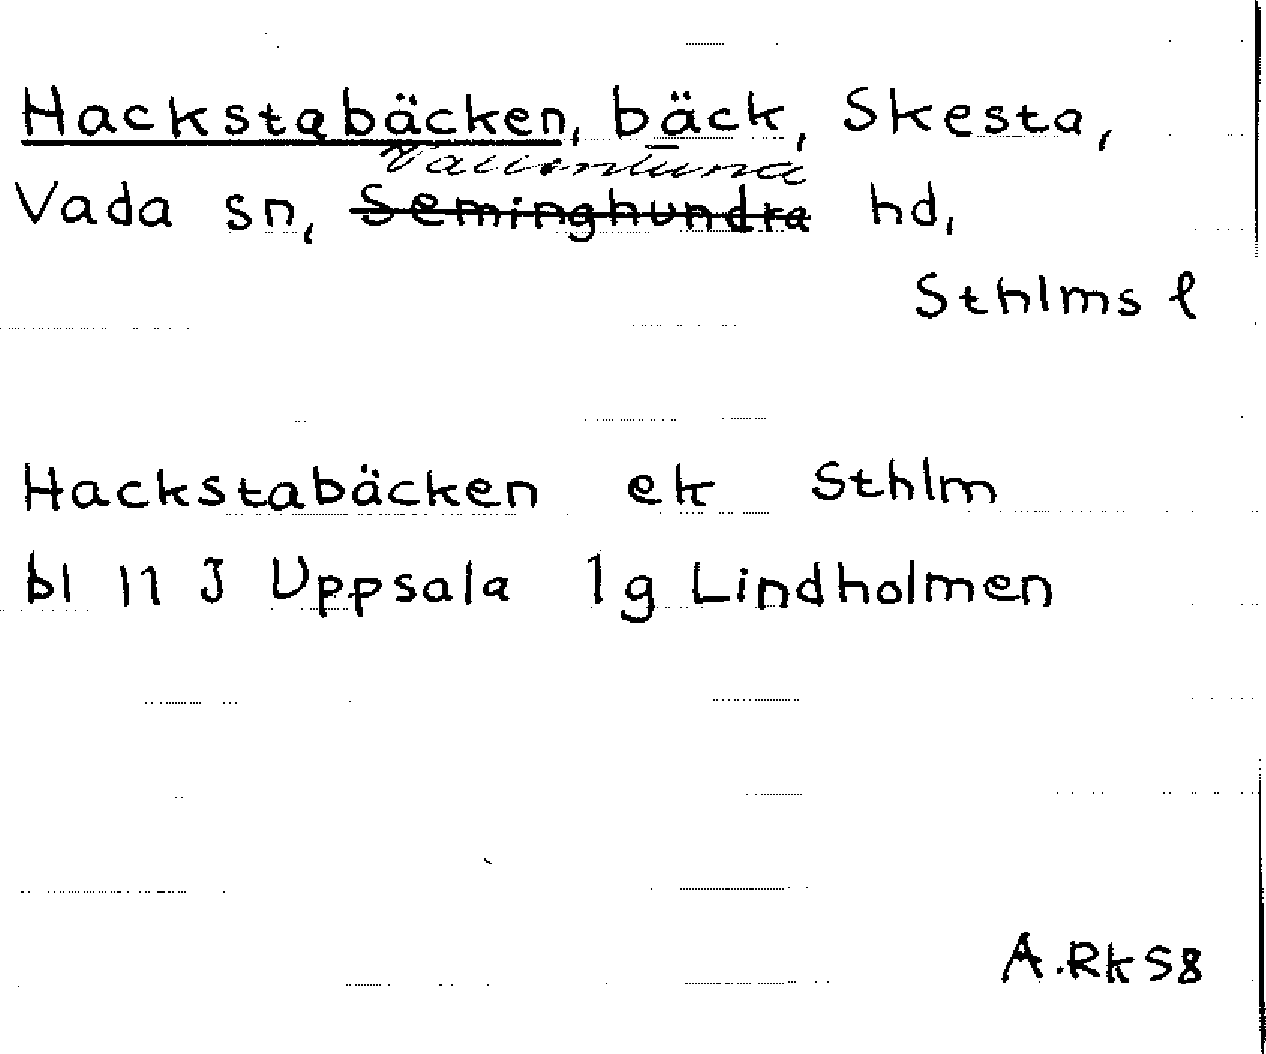 Hackstabäcken, bäck, Skesta,
Vallentuna
Vada sn, Seminghundra hd,
Sthlms l
Hackstabäcken ek Sthlm
bl 11 J Uppsala lg Lindholmen
A.Rk 58